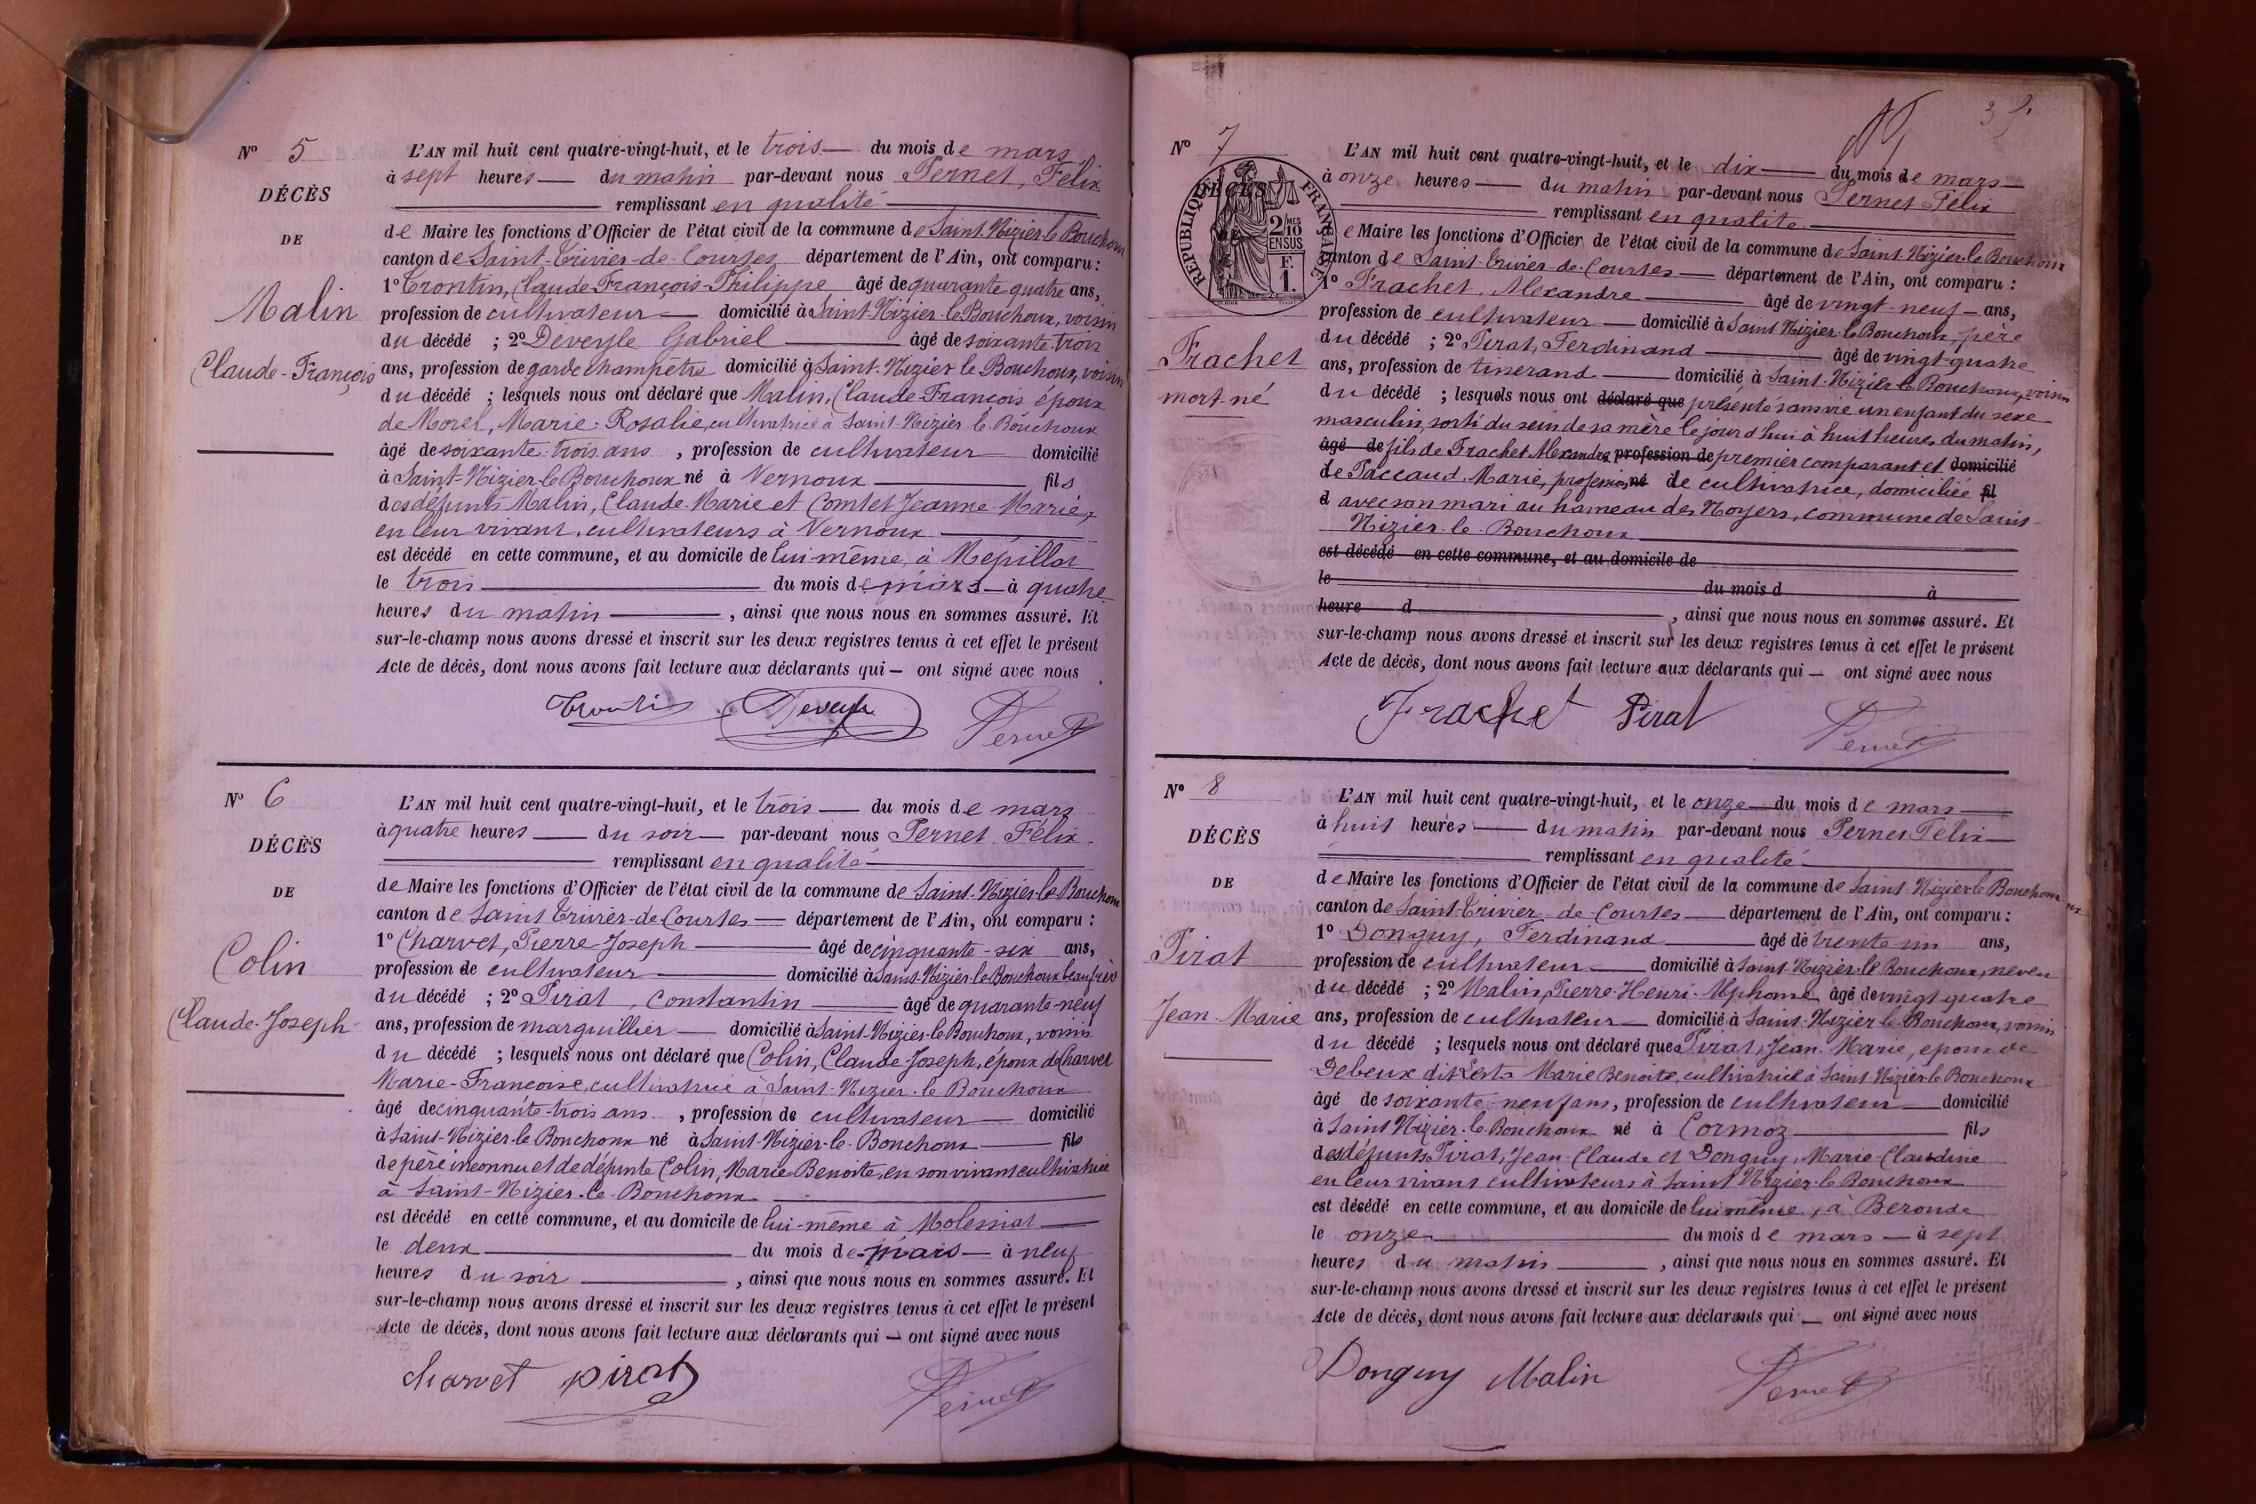 N° 5
DÉCÈS
DE
Malin
Claude-François
L'AN mil huit cent quatre-vingt-huit, et le trois du mois de mars
à sept heures du matin par-devant nous Pernet, Félix
remplissant en qualité
de Maire les fonctions d'Officier de l'état civil de la commune de Saint-Nizier-le-Bouchoux
canton de Saint-Trivier-de-Courtes département de l'Ain, ont comparu :
1° Trontin, Claude-François-Philippe âgé de quarante quatre ans,
profession de cultivateur domicilié à Saint-Nizier-le-Bouchoux, voisin
du décédé ; 2° Deveyle Gabriel âgé de soixante-trois
ans, profession de garde champêtre domicilié à Saint-Nizier le Bouchoux, voisin
du décédé ; lesquels nous ont déclaré que Malin, Claude-François époux
de Morel, Marie-Rosalie, cultivatrice à Saint-Nizier-le-Bouchoux
âgé de soixante-trois ans, profession de cultivateur domicilié
à Saint-Nizier-le-Bouchoux né à Vernoux fils
des défunts Malin, Claude-Marie et Comtet Jeanne-Marie,
en leur vivant, cultivateurs à Vernoux
est décédé en cette commune, et au domicile de lui-même, à Mépillat
le trois du mois de mars à quatre
heures du matin, ainsi que nous nous en sommes assuré. Et
sur-le-champ nous avons dressé et inscrit sur les deux registres tenus à cet effet le présent
Acte de décès, dont nous avons fait lecture aux déclarants qui — ont signé avec nous
Trontin Deveyle Pernet
N° 6
DÉCÈS
DE
Colin
Claude-Joseph
L'AN mil huit cent quatre-vingt-huit, et le trois du mois de mars
à quatre heures du soir par-devant nous Pernet Félix
remplissant en qualité
de Maire les fonctions d'Officier de l'état civil de la commune de Saint-Nizier-le-Bouchoux
canton de Saint Trivier-de-Courtes département de l'Ain, ont comparu :
1° Charvet, Pierre Joseph âgé de cinquante-six ans,
profession de cultivateur domicilié à Saint-Nizier-le-Bouchoux beau frère
du décédé ; 2° Pirat, Constantin âgé de quarante-neuf
ans, profession de marguillier domicilié à Saint-Nizier-le-Bouchoux, voisin
du décédé ; lesquels nous ont déclaré que Colin, Claude-Joseph, époux de Charvet
Marie-Françoise, cultivatrice à Saint-Nizier-le-Bouchoux
âgé de cinquante-trois ans, profession de cultivateur domicilié
à Saint-Nizier-le-Bouchoux né à Saint-Nizier-le-Bouchoux fils
de père inconnu et de défunte Colin, Marie-Benoite, en son vivant cultivatrice
à Saint-Nizier-le-Bouchoux
est décédé en cette commune, et au domicile de lui-même à Molessiat
le deux du mois de mars à neuf
heures du soir, ainsi que nous nous en sommes assuré. Et
sur-le-champ nous avons dressé et inscrit sur les deux registres tenus à cet effet le présent
Acte de décès, dont nous avons fait lecture aux déclarants qui — ont signé avec nous
Charvet Pirat Pernet
N° 7
RÉPUBLIQUE FRANÇAISE
2/10 EN SUS
F. 1.
Frachet
mort-né
L'AN mil huit cent quatre-vingt-huit, et le dix du mois de mars
à onze heures du matin par-devant nous Pernet Félix
remplissant en qualité
e Maire les fonctions d'Officier de l'état civil de la commune de Saint-Nizier-le-Bouchoux
canton de Saint-Trivier-de-Courtes département de l'Ain, ont comparu :
1° Frachet, Alexandre âgé de vingt-neuf ans,
profession de cultivateur domicilié à Saint Nizier-le-Bouchoux, père
du décédé ; 2° Pirat, Ferdinand âgé de vingt-quatre
ans, profession de tisserand domicilié à Saint-Nizier-le-Bouchoux, voisin
du décédé ; lesquels nous ont déclaré que présenté sans vie un enfant du sexe
masculin, sorti du sein de sa mère le jour d'hui à huit heures du matin,
âgé de fils de Frachet Alexandre profession de premier comparant et domicilié
de Paccaud Marie, profession né de cultivatrice, domiciliée fil
d avec son mari au hameau des Noyers, commune de Saint-
Nizier-le-Bouchoux
est décédé en cette commune, et au domicile de
le du mois d à
heure d, ainsi que nous nous en sommes assuré. Et
sur-le-champ nous avons dressé et inscrit sur les deux registres tenus à cet effet le présent
Acte de décès, dont nous avons fait lecture aux déclarants qui — ont signé avec nous
Frachet Pirat Pernet
N° 8
DÉCÈS
DE
Pirat
Jean-Marie
L'AN mil huit cent quatre-vingt-huit, et le onze du mois de mars
à huit heures du matin par-devant nous Pernet Félix
remplissant en qualité
de Maire les fonctions d'Officier de l'état civil de la commune de Saint-Nizier-le-Bouchoux
canton de Saint-Trivier-de-Courtes département de l'Ain, ont comparu :
1° Donguy, Ferdinand âgé de trente-un ans,
profession de cultivateur domicilié à Saint-Nizier-le-Bouchoux, neveu
du décédé ; 2° Malin, Pierre-Henri-Alphonse âgé de vingt-quatre
ans, profession de cultivateur domicilié à Saint-Nizier-le-Bouchoux, voisin
du décédé ; lesquels nous ont déclaré que Pirat, Jean-Marie, époux de
Debeux dit Marie Benoite, cultivatrice à Saint Nizier-le-Bouchoux
âgé de soixante-neuf ans, profession de cultivateur domicilié
à Saint Nizier-le-Bouchoux né à Cormoz fils
des défunts Pirat, Jean-Claude et Donguy, Marie-Claudine
en leur vivant cultivateurs à Saint Nizier-le-Bouchoux
est décédé en cette commune, et au domicile de lui même, à Beronde
le onze du mois de mars à sept
heures du matin, ainsi que nous nous en sommes assuré. Et
sur-le-champ nous avons dressé et inscrit sur les deux registres tenus à cet effet le présent
Acte de décès, dont nous avons fait lecture aux déclarants qui — ont signé avec nous
Donguy Malin Pernet